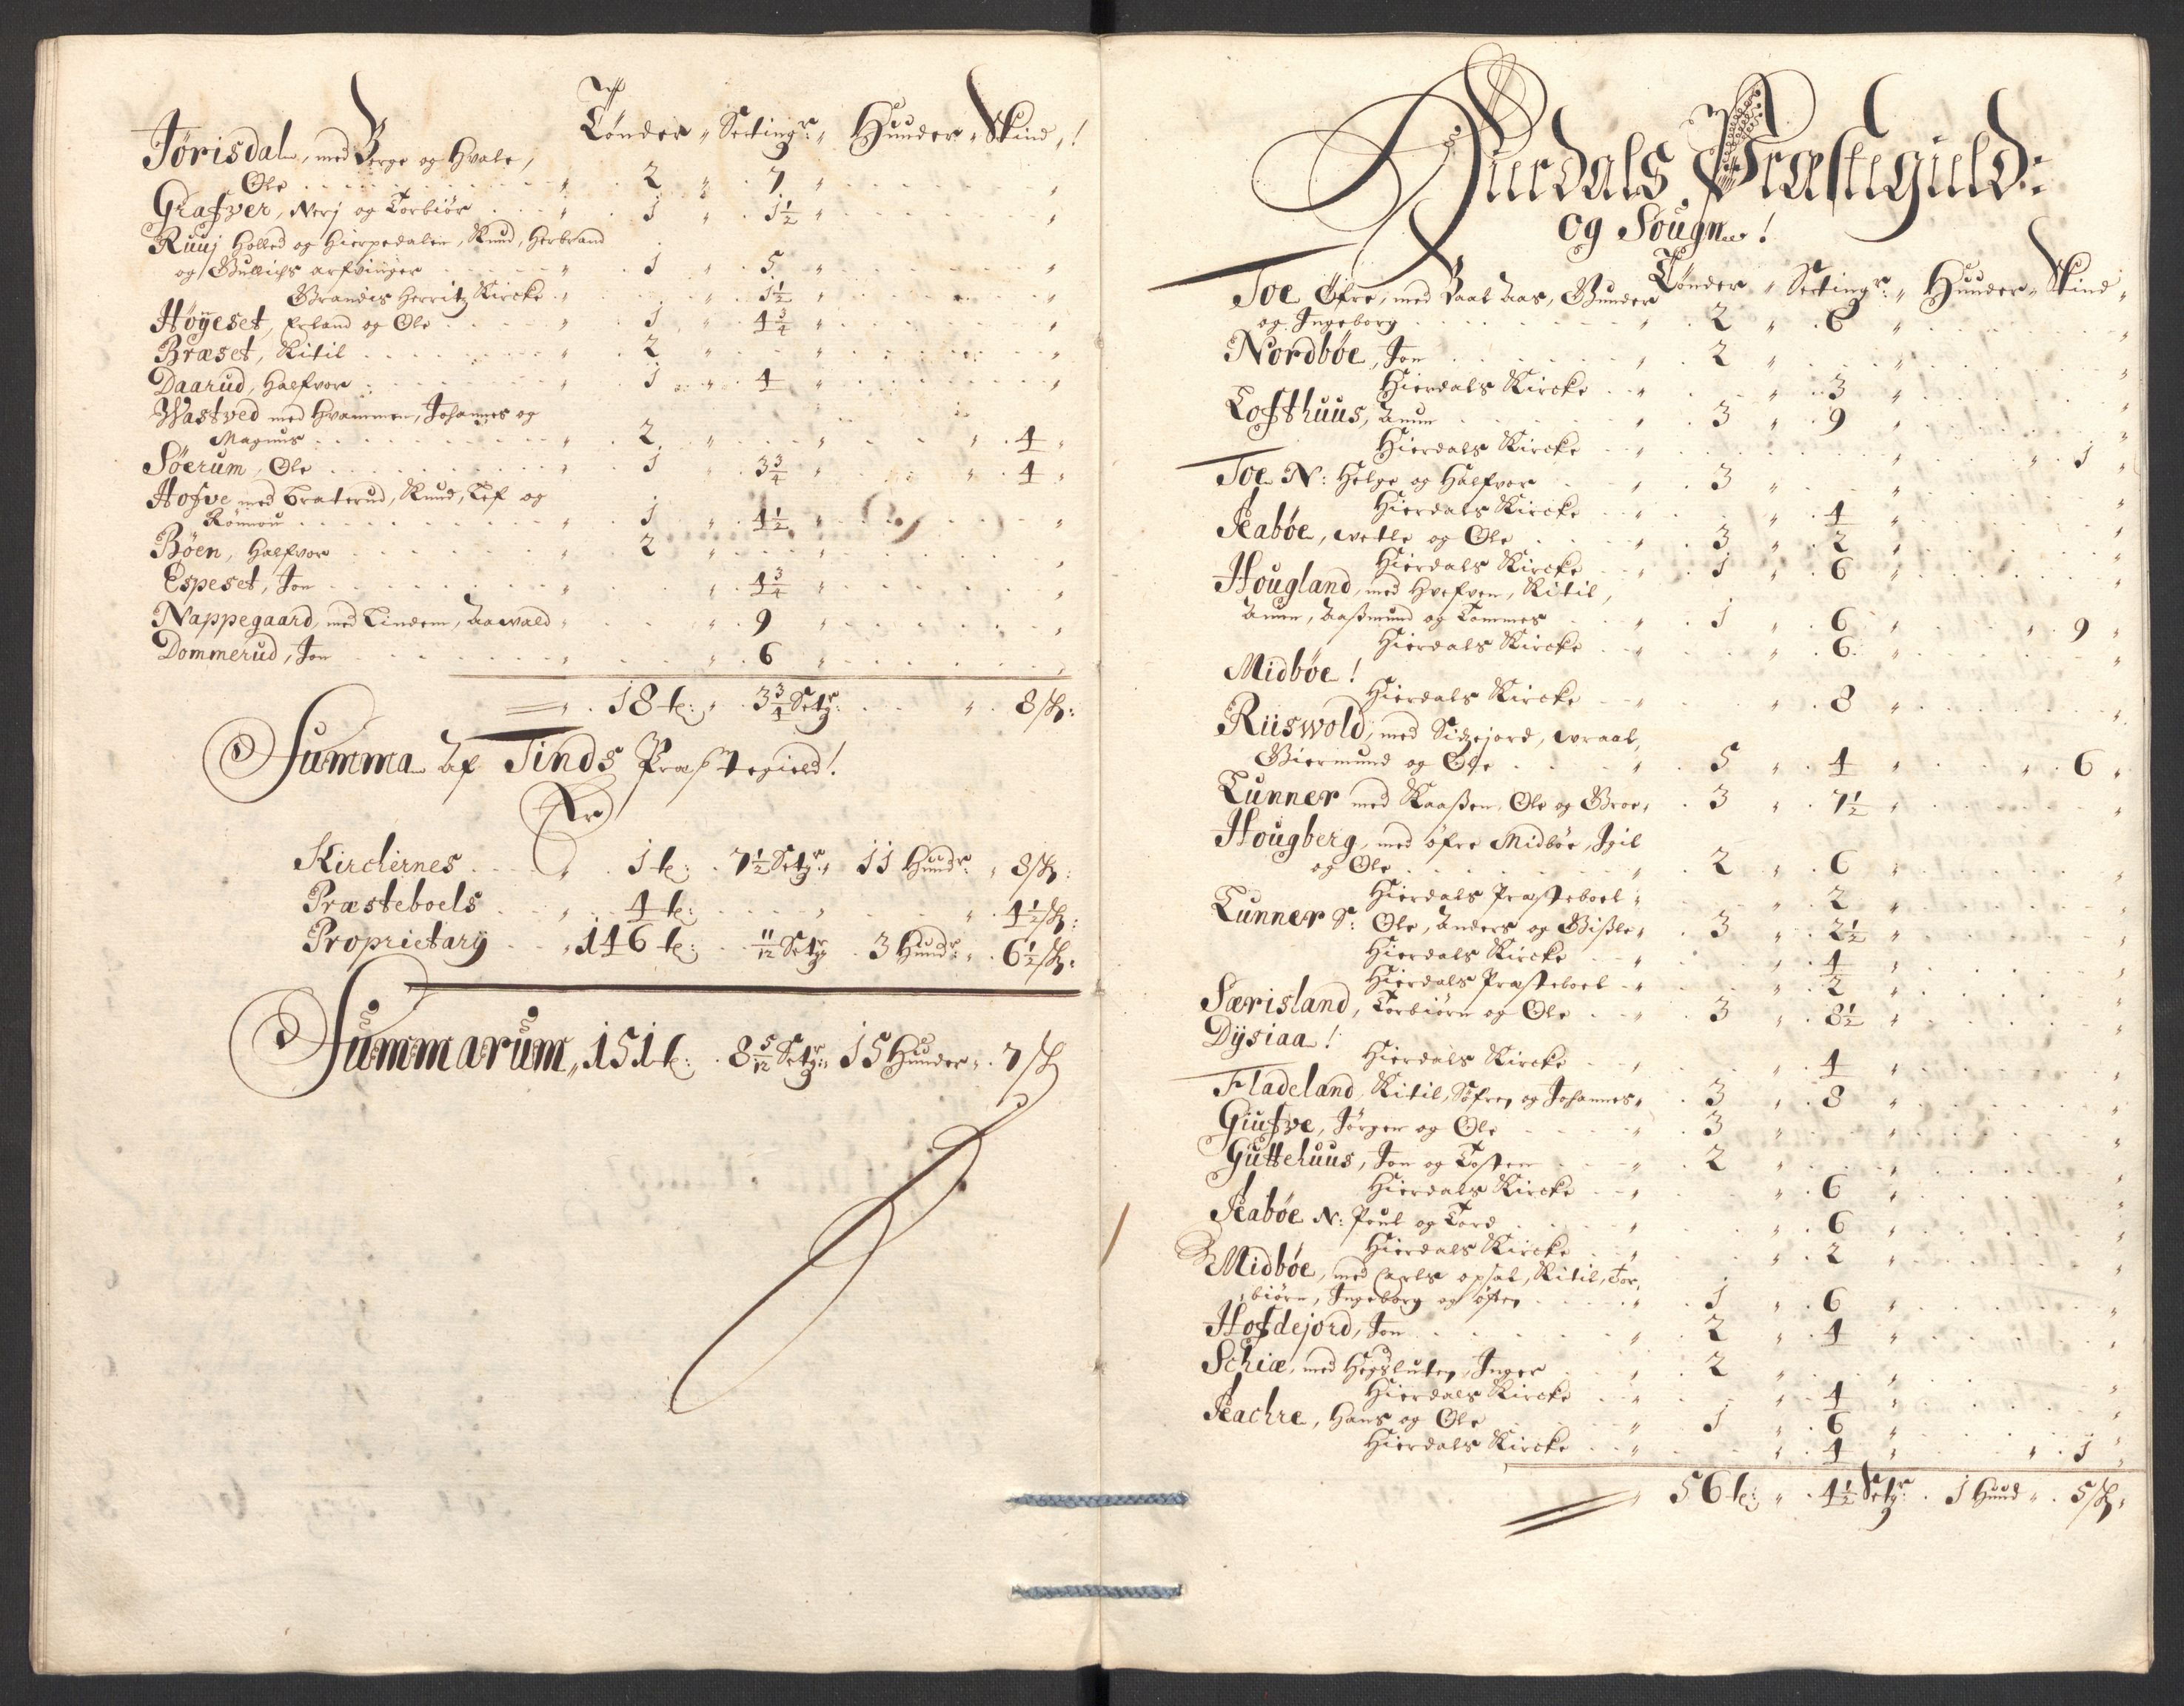 Tønder „ Setting: „ Hunder „ Skind „!
Jørisdal, med Berge og Hvale,
Ole „ 2 „ 7 „ „
Grafver, Nerj og Torbiør „ 1 „ 1½ „ „
Ruuj Holled og Hierpedalen, Knud, Herbrand
og Gullichs arfvinger „ 1 „ 5 „ „
Brandis Herritz Kircke „ „ 1½ „ „
Høyeset, Erland og Ole „ 1 „ 4¾ „ „
Bræset, Kitil „ 2 „ „ „
Daarud, Halfvor „ 1 „ 4 „ „
Wastved med Hvammen, Johannes og
Magnus „ 2 „ „ „ 4 „
Söerum, Ole „ 1 „ 3¾ „ „ 4 „
Hofve med Traterud, Knud, Lef og
Rönnou „ 1 „ 4½ „ „
Böen, Halfvor „ 2 „ „ „
Espeset, Jon „ „ 4¾ „ „
Nappegaard, med Lindem, Aawald „ „ 9 „ „
Dommerud, Jon „ „ 6 „ „
„ 18 t: „ 3¾ Setg: „ 8 sk:
Summa Af Tinds Præstegield!
Er
Kirchernes „ 1 t: 7½ Setg: „ 11 Hund: „ 8 sk:
Præsteboels „ 4 t: „ „ 4½ sk:
Proprietarÿ „ 146 t: 11/12 Setg 3 Hund: „ 6½ sk:
Summarum, 151 t: 8 5/12 Setg: 15 Hunder „ 7 sk
Hierdals Præstegield:
og Sougn!
Tønder „ Setting: „ Hunder „ Skind „
Toe Øfre, med Baal Aas, Gunder
og Ingeborg „ 2 „ 6 „ „
Nordböe, Jon „ 2 „ „ „
Hierdals Kircke „ „ 3 „ „
Lofthuus, Anun „ 3 „ 9 „ „
Hierdals Kircke „ „ „ 1 „
Toe N: Helge og Halfvor „ 3 „ „ „
Hierdals Kircke „ „ 4 „ „
Seaböe, wetle og Ole „ 3 „ 2 „ „
Hierdals Kircke „ 1 „ 6 „ „
Hougland, med Hvefven, Kitil,
Anun, Aaßmund og Tommes „ 1 „ 6 „ „ 9 „
Hierdals Kircke „ „ 6 „ „
Midböe!
Hierdals Kircke „ „ 8 „ „
Riiswold, med Sidzejord, wraal,
Giermund og Ole „ 5 „ 4 „ „ 6 „
Lunner med Kaaßen, Ole og Groe „ 3 „ 7½ „ „
Hougberg, med øfre Midböe, Igil
og Ole „ 2 „ 6 „ „
Hierdals Præsteboel „ „ 2 „ „
Lunner S: Ole, Anders og Gißle „ 3 „ 2½ „ „
Hierdals Kircke „ „ 4 „ „
Hierdals Præsteboel „ „ 2 „ „
Særisland, Torbiørn og Ole „ 3 „ 8½ „ „
Dÿsiaa!
Hierdals Kircke „ „ 4 „ „
Fladeland, Kitil, Søfren og Johannes „ 3 „ 8 „ „
Giufve, Jörgen og Ole „ 3 „ „ „
Guttehuus, Jon og Tosten „ 2 „ „ „
Hierdals Kircke „ „ 6 „ „
Seaböe N: Poul og Tord „ „ 6 „ „
Hierdals Kircke „ „ 2 „ „
Midböe, med Carls opsal, Kitil, Tor,
biörn, Ingeborg og østen „ 1 „ 6 „ „
Hofdejord, Jon „ 2 „ 4 „ „
Schiæ, med Hegsluten, Inger „ 2 „ „ „
Hierdals Kircke „ „ 4 „ „
Seachre, Hans og Ole „ 1 „ 6 „ „
Hierdals Kircke „ „ 4 „ „ 1 „
„ 56 t: „ 4½ Setg: 1 Hund „ 5 sk „